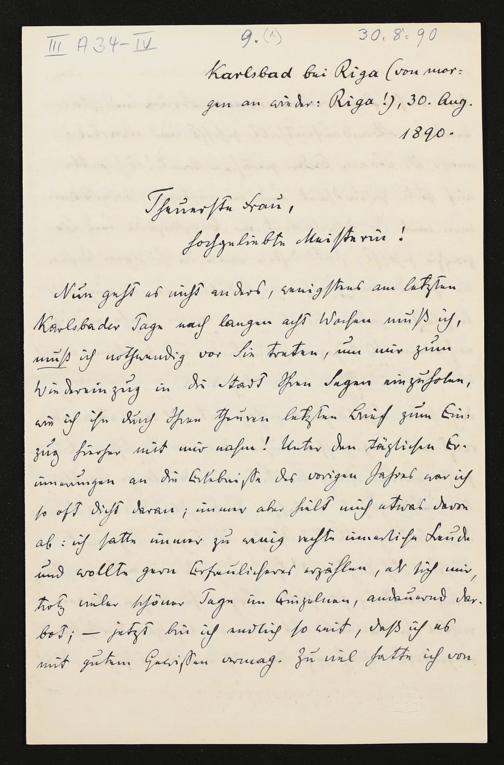 III A34-IV 9.(1) 30.8.90
Karlsbad bei Riga (von mor=
gen an wieder: Riga!), 30. Aug.
1890.
Theuerste Frau,
hochgeliebte Meisterin!
Nun geht es nicht anders, wenigstens am letzten
Karlsbader Tage nach langen acht Wochen muß ich,
muß ich nothwendig vor Sie treten, um mir zum
Wiedereinzug in die Stadt Ihren Segen einzuholen,
wie ich ihn durch Ihren theuren letzten Brief zum Ein=
zug hierher mit mir nahm! Unter den täglichen Er=
innerungen an die Erlebnisse des vorigen Jahres war ich
so oft dicht daran; immer aber hielt mich etwas davon
ab: ich hatte immer zu wenig rechte innerliche Freude
und wollte gern Erfreulicheres erzählen, als sich mir,
trotz vieler schöner Tage im Einzelnen, andauernd dar=
bot; — jetzt bin ich endlich so weit, daß ich es
mit gutem Gewissen vermag. Zu viel hatte ich von